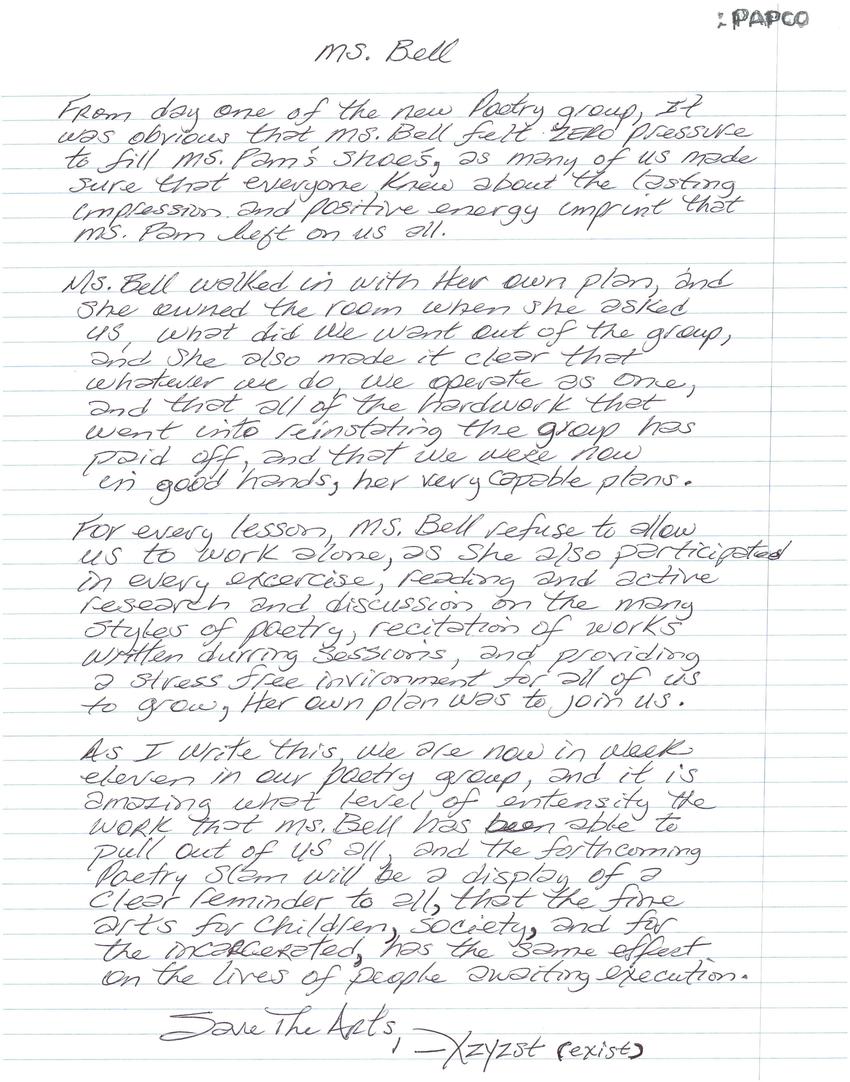 : PAPCO
Ms. Bell
From day one of the new Poetry group, It
was obvious that Ms. Bell felt ZERO pressure
to fill Ms. Pam's shoes, as many of us made
sure that everyone knew about the lasting
impression and positive energy imprint that
Ms. Pam left on us all.
Ms. Bell walked in with Her own plan, and
she owned the room when she asked
us, what did we want out of the group,
and she also made it clear that
whatever we do, we operate as one,
and that all of the hardwork that
went into reinstating the group has
paid off, and that we were now
in good hands, her very capable plans.
For every lesson, Ms. Bell refuse to allow
us to work alone, as she also participated
in every excercise, reading and active
research and discussion on the many
styles of poetry, recitation of works
written durring sessions, and providing
a stress free invironment for all of us
to grow, Her own plan was to join us.
As I write this, we are now in week
eleven in our poetry group, and it is
amazing what level of entensity the
work that Ms. Bell has been able to
pull out of us all, and the forthcoming
Poetry Slam will be a display of a
clear reminder to all, that the fine
arts for children, society, and for
the incarcerated, has the same effect
on the lives of people awaiting execution.
Save The Arts,
—Xzyzst (exist)